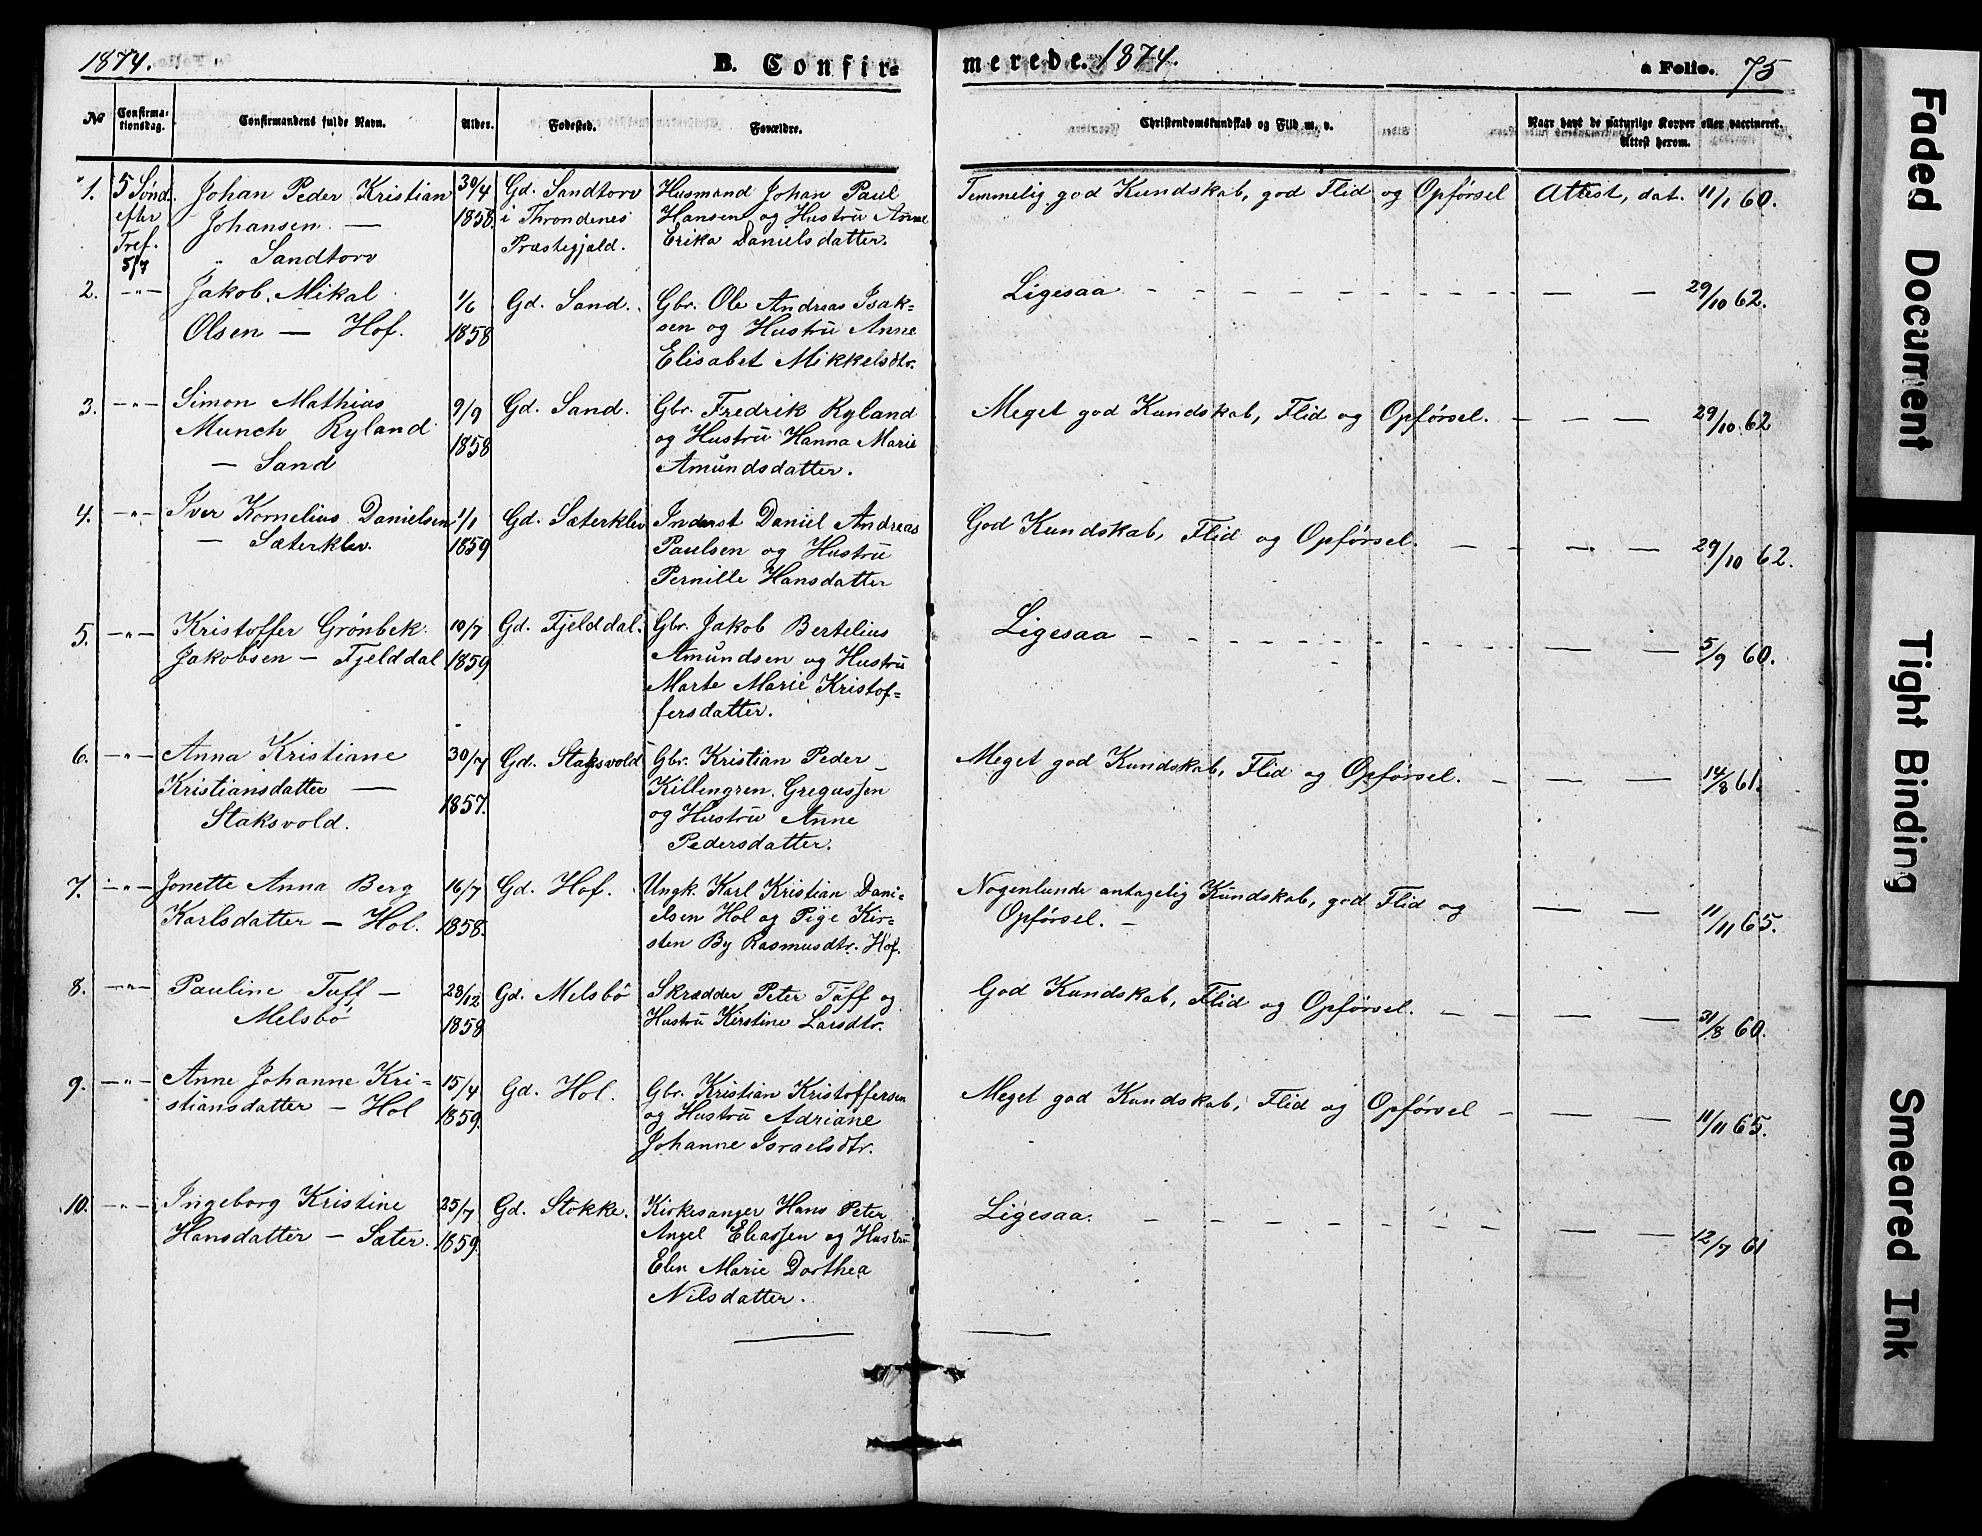 1874. B. Confir= merede. 1874. a Folio. 75
No Confirma-tionsdag. Confirmandens fulde Navn. Alder. Fødested. Forældre. Christendomskundskab og Flid m. v. Naar havt de naturlige Kopper eller vaccineret. Attest herom.
1. 5 Sønd. efter Tref. 5/7
Johan Peder Kristian
Johansen. —
„ Sandtorv
30/4
1858.
Gd. Sandtorv
i Throndenes
Præstegjæld.
Husmand Johan Paul
Hansen og Hustru Anne
Erika Danielsdatter.
Temmelig god Kundskab, god Flid og Opførsel
Attest, dat. 11/1 60.
2. —„—
Jakob Mikal
Olsen — Hof.
1/6
1858
Gd. Sand.
Gbr. Ole Andreas Isak=
sen og Hustru Anne
Elisabet Mikkelsdtr.
Ligesaa — — —
29/10 62.
3. —„—
Simon Mathias
Munch Ryland
— Sand
9/9
1858
Gd. Sand.
Gbr. Fredrik Ryland
og Hustru Hanna Marie
Amundsdatter.
Meget god Kundskab, Flid og Opførsel. — — —
29/10 62
4. —„—
Iver Kornelius Danielsen
— Sæterklev.
1/1
1859
Gd. Sæterklev
Inderst Daniel Andreas
Paulsen og Hustru
Pernille Hansdatter
God Kundskab, Flid og Opførsel. — — —
29/10 62.
5. —„—
Kristoffer Grönbek
Jakobsen — Fjelddal
10/7
1859
Gd. Fjelddal.
Gbr. Jakob Bertelius
Amundsen og Hustru
Marte Marie Kristof=
fersdatter.
Ligesaa — — —
5/9 60.
6. —„—
Anna Kristiane
Kristiansdatter —
Staksvold.
30/7
1857.
Gd. Staksvold
Gbr. Kristian Peder
Killengren Gregussen
og Hustru Anne
Pedersdatter.
Meget god Kundskab, Flid og Opførsel. — — —
14/8 61.
7. —„—
Jonette Anna Berg
Karlsdatter — Hol.
16/7
1858.
Gd. Hof.
Ungk. Karl Kristian Dani-
elsen Hol og Pige Kir=
sten By Rasmusdtr. Hof.
Nogenlunde antagelig Kundskab, god Flid og
Opførsel. —
11/11 65.
8. —„—
Pauline Tuff —
Melsbö
28/12
1858
Gd. Melsbö
Skrædder Peter Tuff og
Hustru Kirstine Larsdtr.
God Kundskab, Flid og Opførsel. — — —
31/8 60.
9. —„—
Anne Johanne Kri=
stiansdatter — Hol
15/4
1859.
Gd. Hol.
Gbr. Kristian Kristoffersen
og Hustru Adriane
Johanne Israelsdtr.
Meget god Kundskab, Flid og Opførsel — — —
11/11 65.
10. —„—
Ingeborg Kristine
Hansdatter — Sæter.
25/7
1859.
Gd. Stokke.
Kirkesanger Hans Peter
Angel Eliassen og Hustru
Elen Marie Dorthea
Nilsdatter.
Ligesaa. — — —
12/7 61
Faded Document
Tight Binding
Smeared Ink